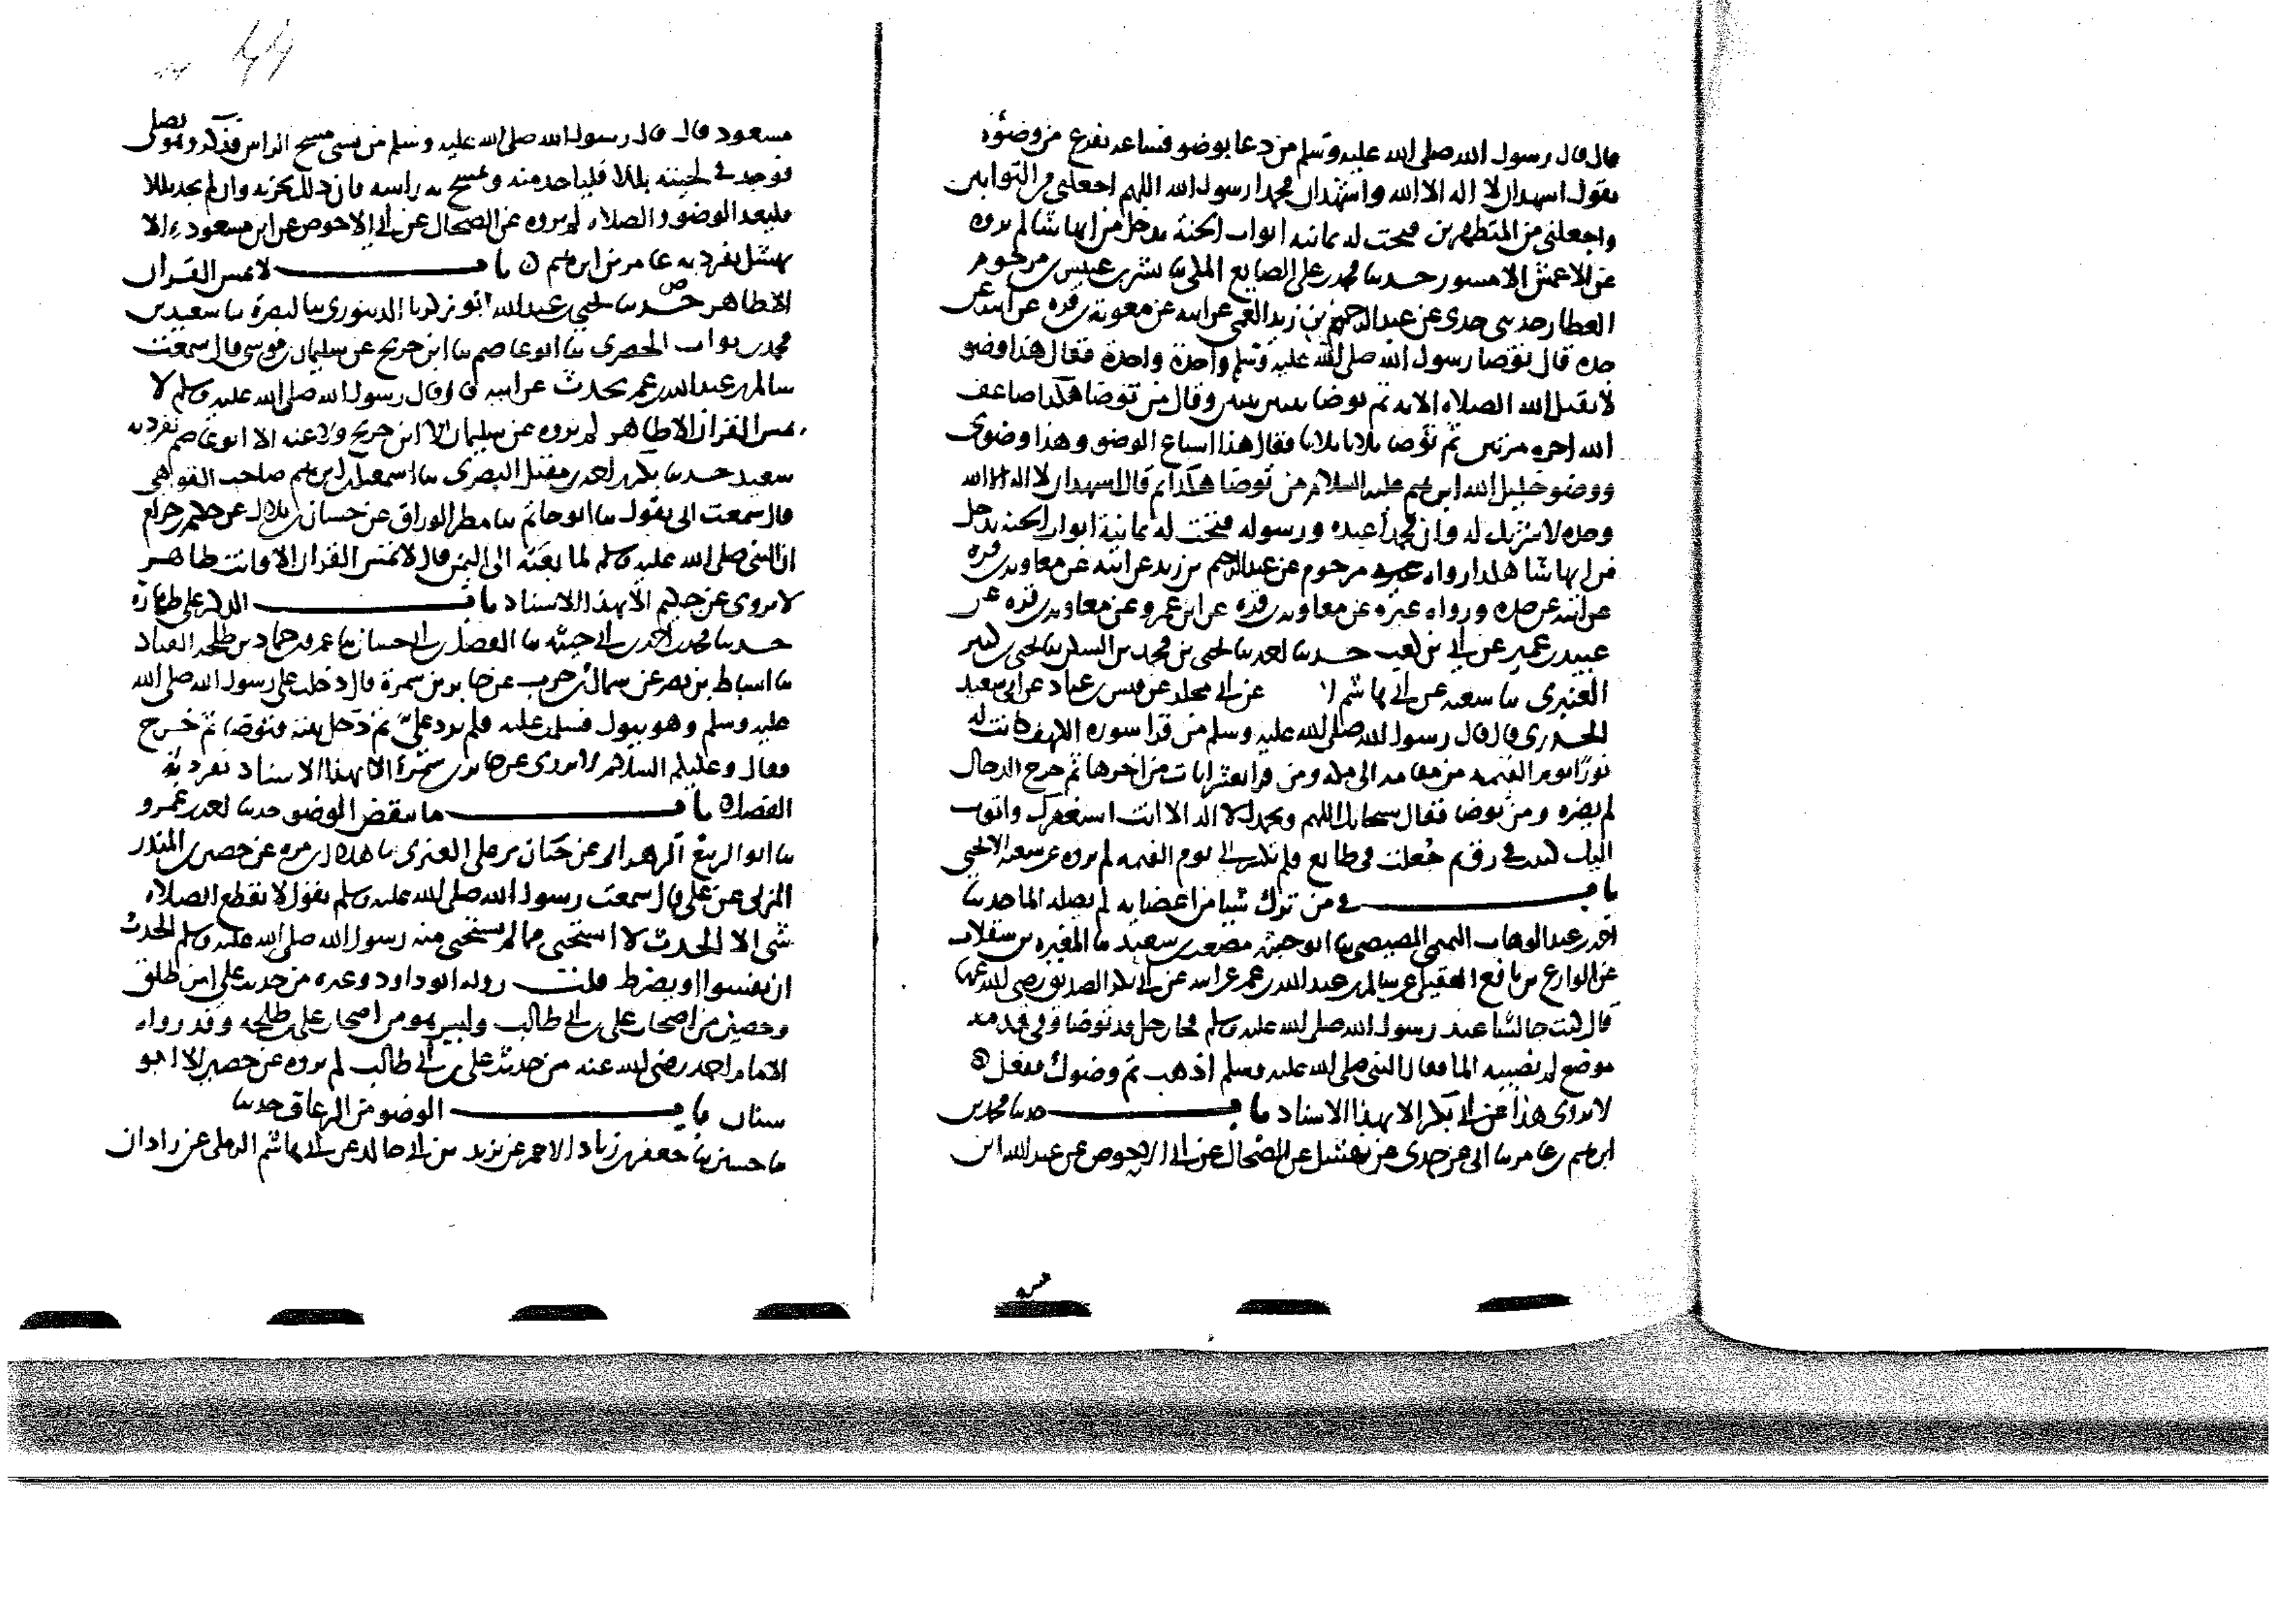 قال قال رسول الله صلى الله عليه وسلم من دعا بوضو فساعه يفرغ من وضوئه
يقول اشهد ان لا اله الا الله واشهد ان محمدا رسول الله اللهم اجعلني من التوابين
واجعلني من المتطهرين فتحت له ثمانيه ابواب الجنة يدخل من ايها شا لم يروه
عن الاعمش الا مسور حدثنا محمد بن علي الصايغ المكي ثنا بشر بن عبيس بن مرحوم
العطار حدثني جدي عن عبد الرحيم بن زيد العمي عن ابيه عن معوية بن قره عن ابيه عن
جده قال توضا رسول الله صلى الله عليه وسلم واحدة واحدة فقال هذا وضو
لا يقبل الله الصلاه الا به ثم توضا ثنتين ثنتين وقال من توضا هكذا ضاعف
الله اجره مرتين ثم توضا ثلاثا ثلاثا فقال هذا اسباغ الوضو وهذا وضوي
ووضو خليل الله ابرهيم عليه السلام من توضا هكذا ثم قال اشهد ان لا اله الا الله
وحده لا شريك له وان محمدا عبده ورسوله فتحت له ثمانية ابواب الجنه يدخل
من ايها شا هكذا رواه مرحوم عن عبد الرحيم بن زيد عن ابيه عن معاويه بن قره
عن ابيه عن جده ورواه غيره عن معاويه بن قره عن ابن عمر وعن معاويه بن قره عن
عبيد بن عمير عن ابي بن كعب حدثنا احمد ثنا يحيى بن محمد بن السكن ثنا يحيى بن كثير
العنبري ثنا شعبه عن ابي هاشم عن ابي مجلز عن قيس بن عباد عن ابي سعيد
الخدري قال قال رسول الله صلى الله عليه وسلم من قرا سوره الكهف كانت له
نورا يوم القيمه من مقامه الى مكه ومن قرا بعشر ايات من اخرها ثم خرج الدجال
لم يضره ومن توضا فقال سبحانك اللهم وبحمدك لا اله الا انت استغفرك واتوب
اليك كتب في رق ثم جعلت في طابع فلم يكسر الى يوم القيمه لم يروه عن شعبه الا يحيى
باب في من ترك شيا من اعضايه لم يصله الما حدثنا
احمد بن عبد الوهاب التميمي المصيصي ثنا ابو خيثمه مصعب بن سعيد ثنا المغيره بن سقلاب
عن الوازع بن نافع العقيلي عن سالم بن عبد الله بن عمر عن ابيه عن ابي بكر الصديق رضي الله عنهما
قال كنت جالسا عند رسول الله صلى الله عليه وسلم فجا رجل قد توضا وفي قدمه
موضع لم يصيبه الما فقال النبي صلى الله عليه وسلم اذهب ثم وضوك ففعل
لا يروى هذا عن ابي بكر الا بهذا الاسناد باب حدثنا محمد بن
ابرهيم بن عامر ثنا ابي عن جدي عن نهشل عن الضحاك عن ابي الاحوص عن عبد الله ابن
مسعود قال قال رسول الله صلى الله عليه وسلم من نسي مسح الراس فذكر وهو يصلي
فوجد في لحيته بللا فلياخذ منه ويمسح به راسه فان ذلك يجزيه وان لم يجد بللا
فليعد الوضو والصلاه لم يروه عن الضحاك عن ابي الاحوص عن ابن مسعود الا
نهشل تفرد به عامر بن ابرهيم باب لا يمس القران
الا طاهر حدثنا يحيى بن عبد الله ابو زكريا الدينوري بالبصرة ثنا سعيد بن
محمد بن ثواب الحصري ثنا ابو عاصم ثنا ابن جريج عن سليمان بن موسى قال سمعت
سالم بن عبد الله بن عمر يحدث عن ابيه قال قال رسول الله صلى الله عليه وسلم لا
يمس القران الا طاهر لم يروه عن سليمان الا ابن جريج ولا عنه الا ابو عاصم تفرد به
سعيد حدثنا بكر بن احمد بن مقبل البصري ثنا اسمعيل بن ابرهيم صاحب القوهي
قال سمعت ابي يقول ثنا ابو حاتم ثنا مطر الوراق عن حسان بن بلال عن حكيم بن حزام
ان النبي صلى الله عليه وسلم لما بعثه الى اليمن قال لا تمس القران الا وانت طاهر
لا يروى عن حكيم الا بهذا الاسناد باب الذكر على طهارة
حدثنا محمد بن احمد بن ابي خيثمه ثنا الفضل بن ابي حسان ثنا عمرو بن حماد بن طلحه القناد
ثنا اسباط بن نصر عن سماك بن حرب عن جابر بن سمرة قال دخلت على رسول الله صلى الله
عليه وسلم وهو يبول فسلمت عليه فلم يرد علي ثم دخل بيته فتوضا ثم خرج
فقال وعليكم السلام لا يروى عن جابر بن سمرة الا بهذا الاسناد تفرد به
الفضل باب ما ينقض الوضو حدثنا احمد بن عمرو
ثنا ابو الربيع الزهراني عن حبان بن علي العنزي ثنا ضرار بن مره عن حصين بن المنذر
المزني عن علي قال سمعت رسول الله صلى الله عليه وسلم يقول لا يقطع الصلاه
شي الا الحدث لا استحيي مما لم يستحيي منه رسول الله صلى الله عليه وسلم الحدث
ان يفسوا او يضرط قلت رواه ابو داود وغيره من حديث علي ابن طلق
وحصين من اصحاب علي بن ابي طالب وليس هو من اصحاب علي بن طلحه وقد رواه
الامام احمد رضي الله عنه من حديث علي بن ابي طالب لم يروه عن حصين الا ابو
سنان باب الوضو من الرعاف حدثنا
ثنا حسين ثنا جعفر بن زياد الاحمر عن يزيد بن ابي خالد عن ابي هاشم الرماني عن زاذان